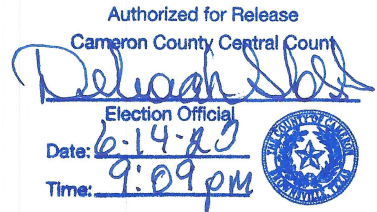 Authorized for Release
Cameron County Central Count
Election Official
Date: 6-14-23
Time: 9:09 pm
THE COUNTY OF CAMERON
BROWNSVILLE, TEXAS